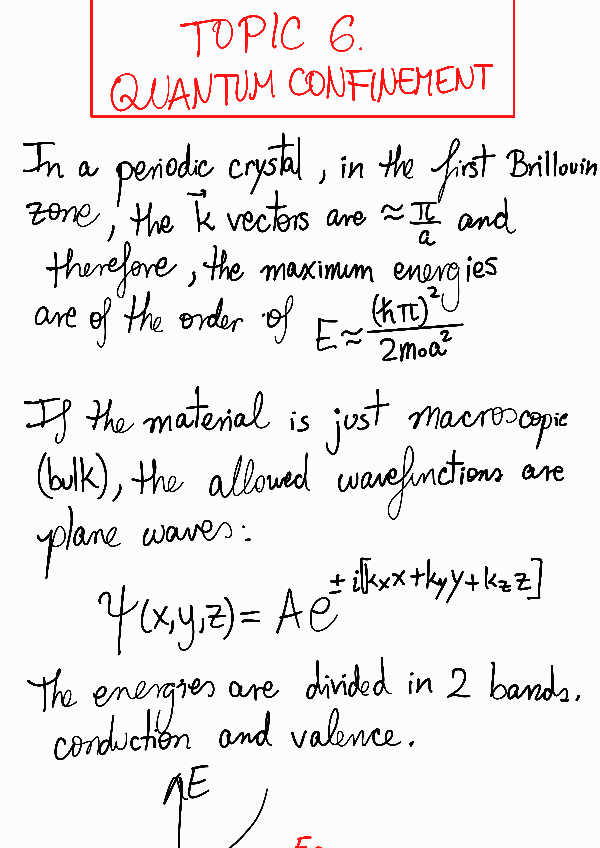 TOPIC 6.
QUANTUM CONFINEMENT
In a periodic crystal, in the first Brillouin
zone, the k⃗ vectors are ≈ π/a and
therefore, the maximum energies
are of the order of E ≈ (ħπ)²/2m₀a²
If the material is just macroscopic
(bulk), the allowed wavefunctions are
plane waves:
Ψ(x,y,z) = A e^{± i[kₓx+k_yy+k_zz]}
The energies are divided in 2 bands.
conduction and valence.
E